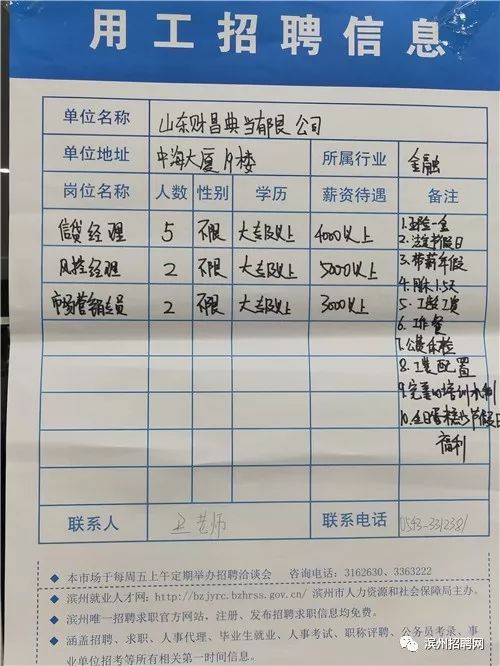 用工招聘信息
单位名称 山东财昌典当有限公司
单位地址 中海大厦19楼 所属行业 金融
岗位名称 人数 性别 学历 薪资待遇 备注
信贷经理 5 不限 大专及以上 4000以上
风控经理 2 不限 大专及以上 5000以上
市场营销专员 2 不限 大专及以上 3000以上
1.五险一金
2.法定节假日
3.带薪年假
4.周休1.5天
5.工龄工资
6.工作餐
7.公费体检
8.工装配置
9.完善的培训机制
10.生日蛋糕及节假日
福利
联系人 老师 联系电话 0543-3312381
◆ 本市场于每周五上午定期举办招聘洽谈会 咨询电话:3162630、3363222
◆ 滨州就业人才网:http://bzjyrc.bzhrss.gov.cn/ 滨州市人力资源和社会保障局主办。
◆ 滨州唯一招聘求职官方网站,注册、发布招聘求职信息均免费。
◆ 涵盖招聘、求职、人事代理、毕业生就业、人事考试、职称评聘、公务员考录、事
业单位招考等所有相关第一时间信息。
滨州招聘网